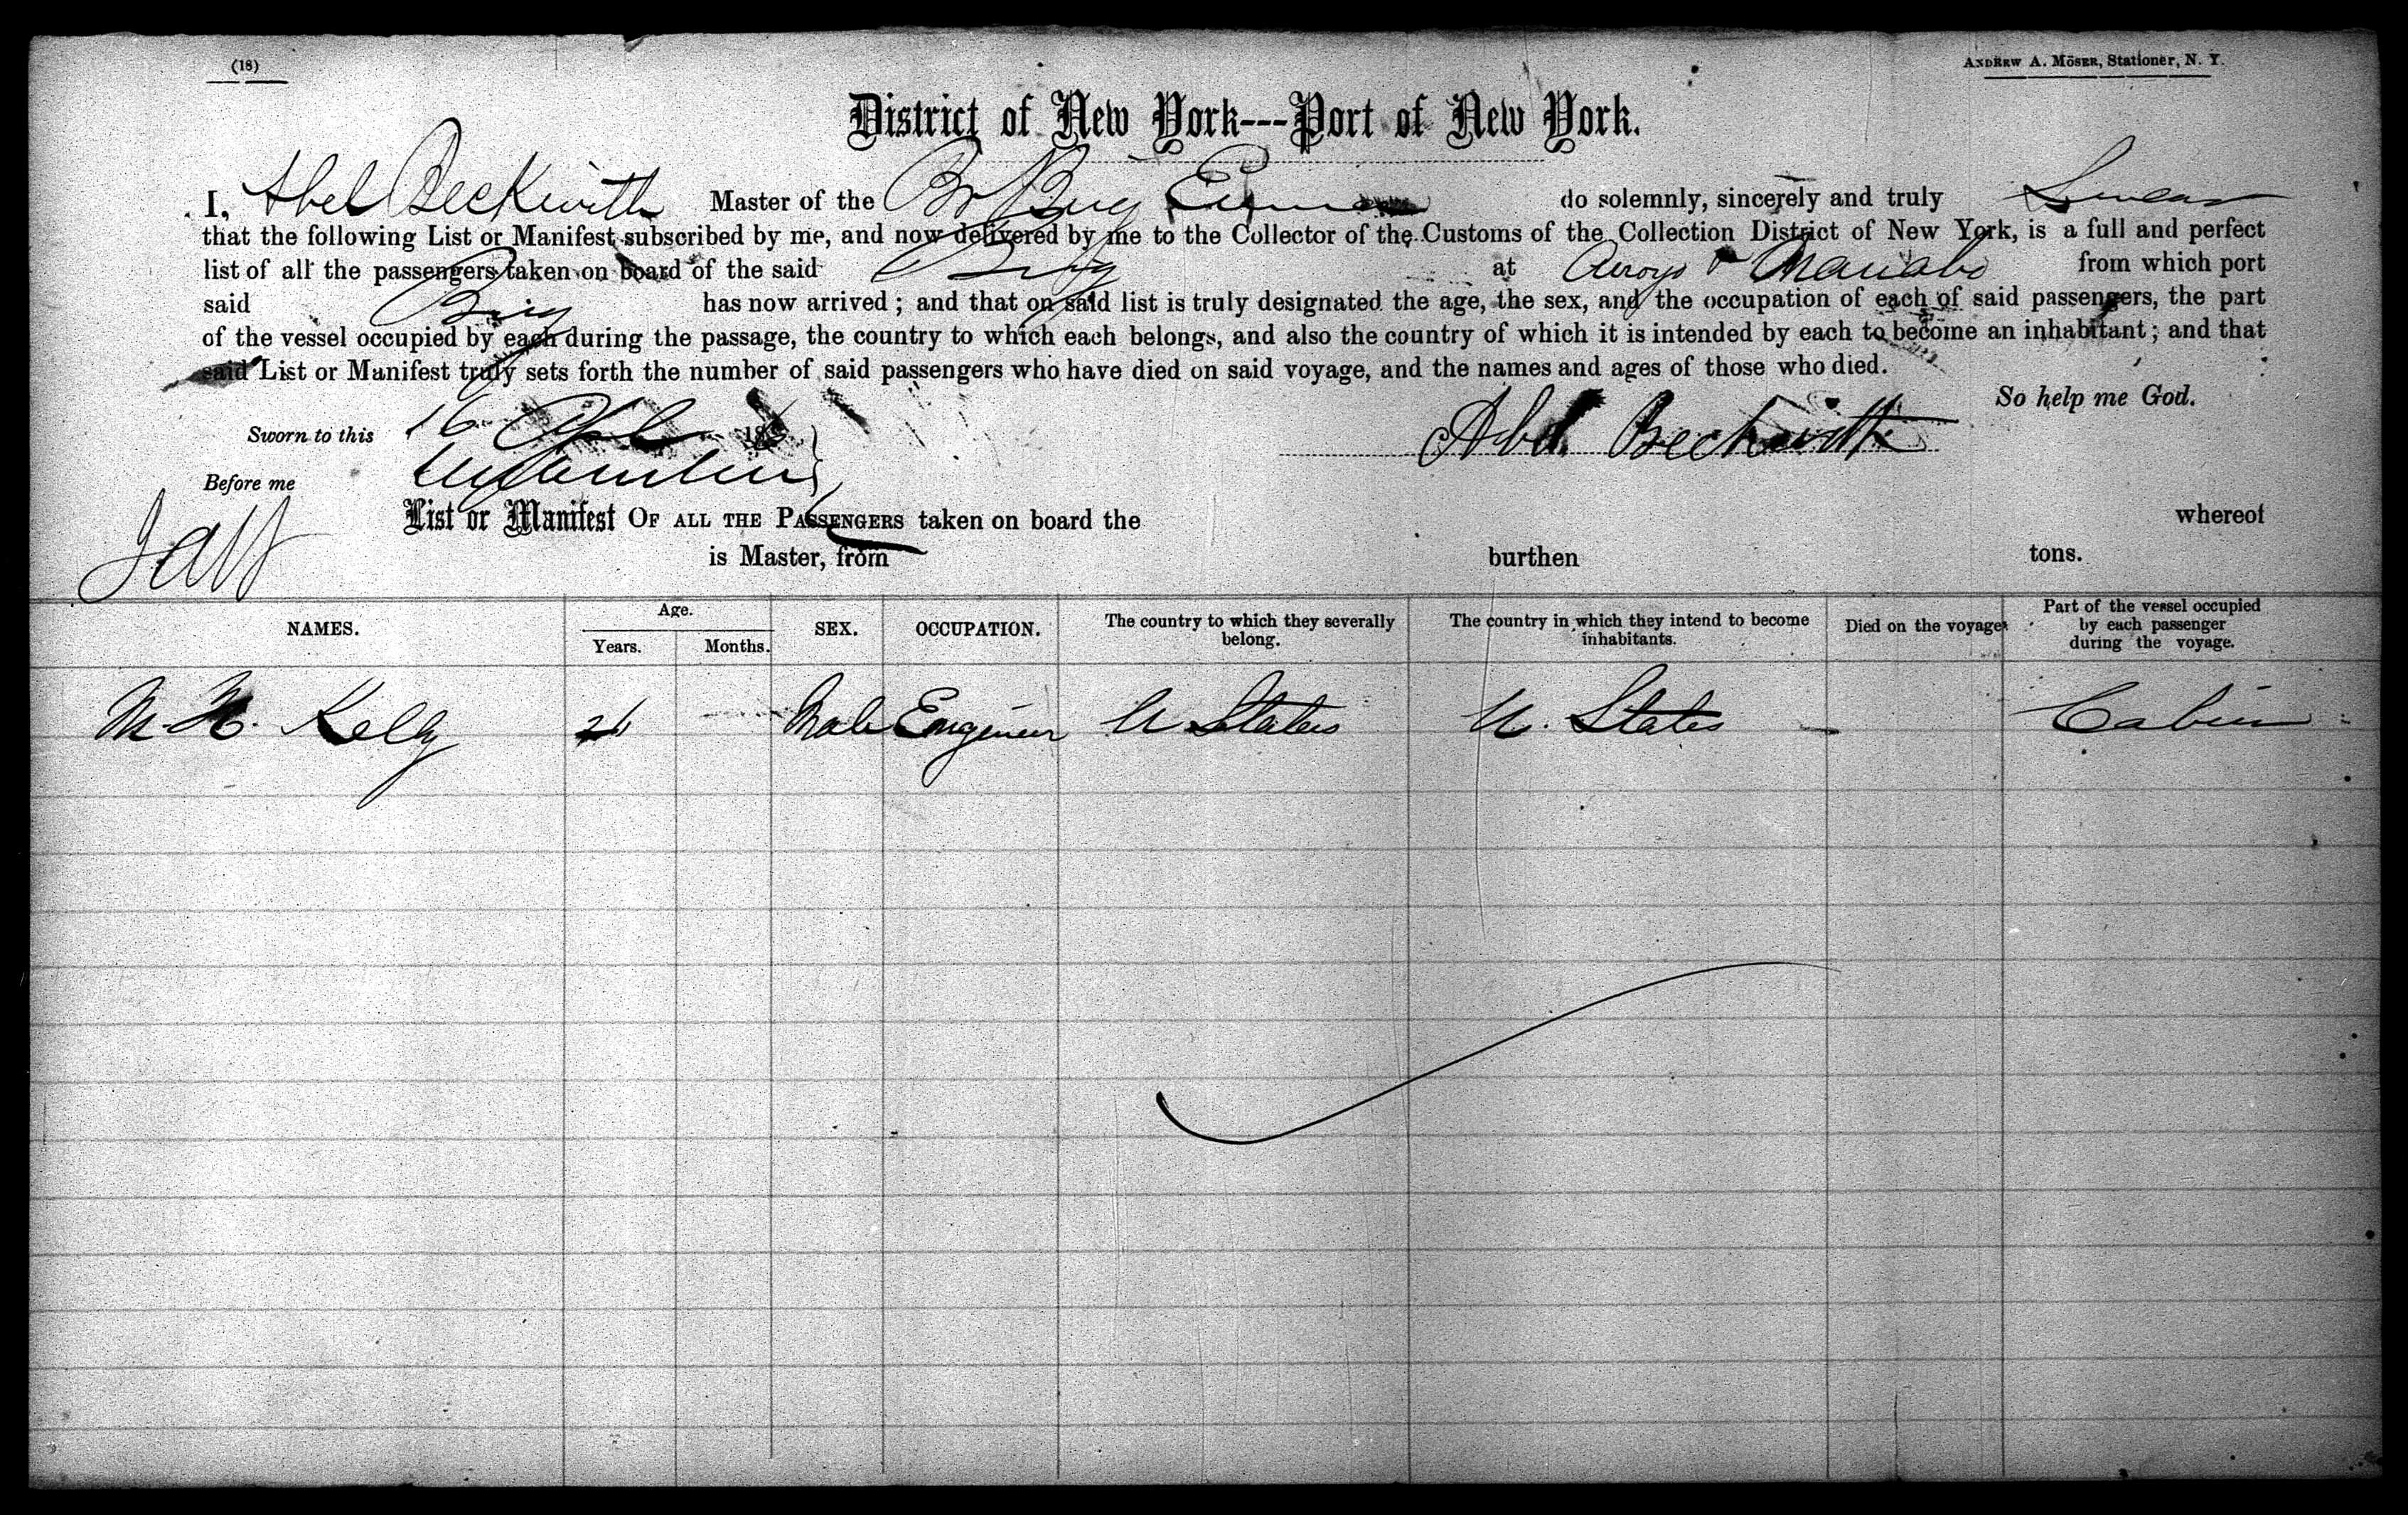 (18)
ANDREW A. MÖSER, Stationer, N. Y.
District of New York---Port of New York.
I, Abel Beckwith Master of the Br Brig do solemnly, sincerely and truly Swear
that the following List or Manifest subscribed by me, and now delivered by me to the Collector of the Customs of the Collection District of New York, is a full and perfect
list of all the passengers taken on board of the said Brig at Arroyo & Manabo from which port
said Brig has now arrived; and that on said list is truly designated the age, the sex, and the occupation of each of said passengers, the part
of the vessel occupied by each during the passage, the country to which each belongs, and also the country of which it is intended by each to become an inhabitant; and that
said List or Manifest truly sets forth the number of said passengers who have died on said voyage, and the names and ages of those who died.
So help me God.
Sworn to this 16 188
Abel Beckwith
Before me
List or Manifest OF ALL THE PASSENGERS taken on board the whereof
is Master, from burthen tons.
NAMES. Age. Years. Months. SEX. OCCUPATION. The country to which they severally belong. The country in which they intend to become inhabitants. Died on the voyage. Part of the vessel occupied by each passenger during the voyage.
Kelly Male Engineer U States U. States Cabin